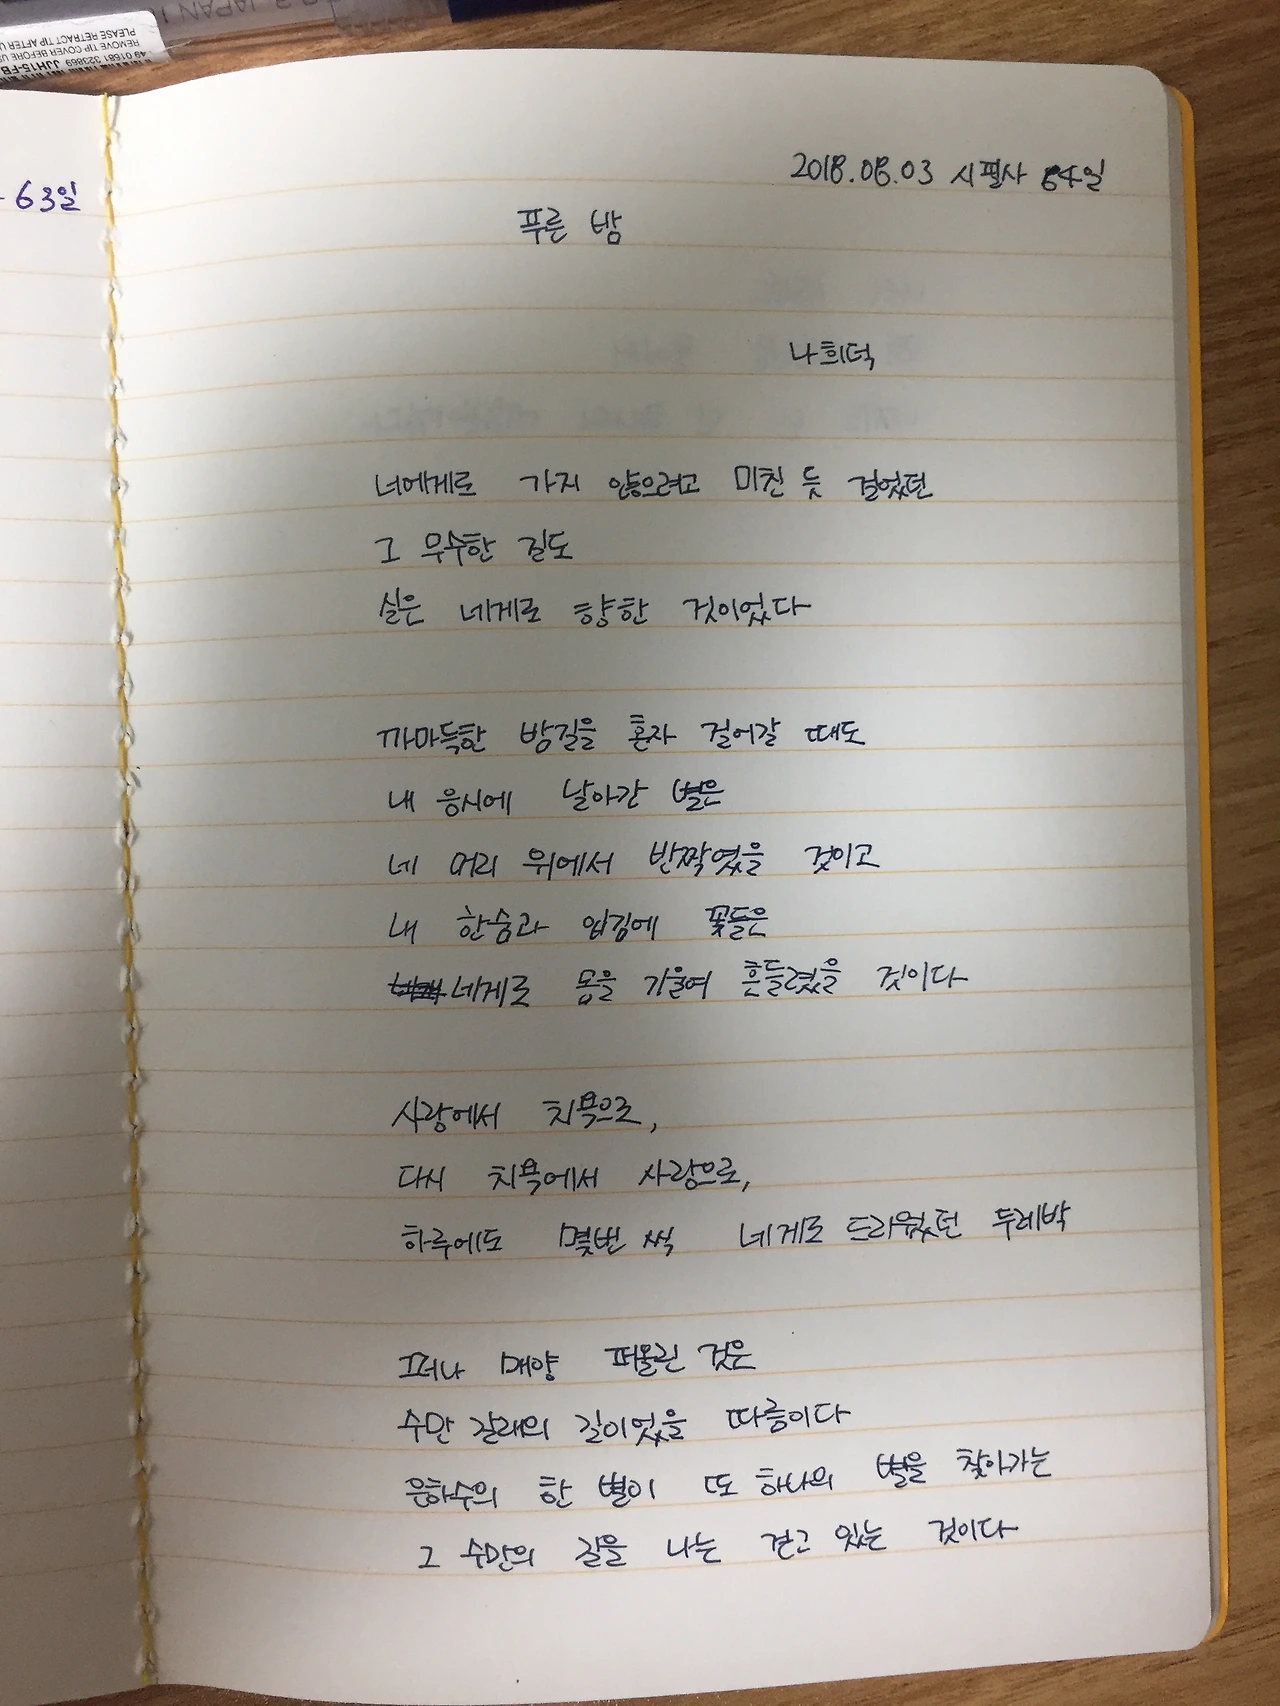 JAPAN
PLEASE RETRACT TIP AFTER U
REMOVE TIP COVER BEFORE US
49 01681 323869 JJH15-FB
63일
2018.08.03 시필사 64일
푸른 밤
나희덕
너에게로 가지 않으려고 미친 듯 걸었던
그 무수한 길도
실은 네게로 향한 것이었다
까마득한 밤길을 혼자 걸어갈 때도
내 응시에 날아간 별은
네 머리 위에서 반짝였을 것이고
내 한숨과 입김에 꽃들은
네게로 몸을 기울여 흔들렸을 것이다
사랑에서 치욕으로,
다시 치욕에서 사랑으로,
하루에도 몇번 씩 네게로 드리웠던 두레박
그러나 매양 퍼올린 것은
수만 갈래의 길이었을 따름이다
은하수의 한 별이 또 하나의 별을 찾아가는
그 수만의 길을 나는 걷고 있는 것이다